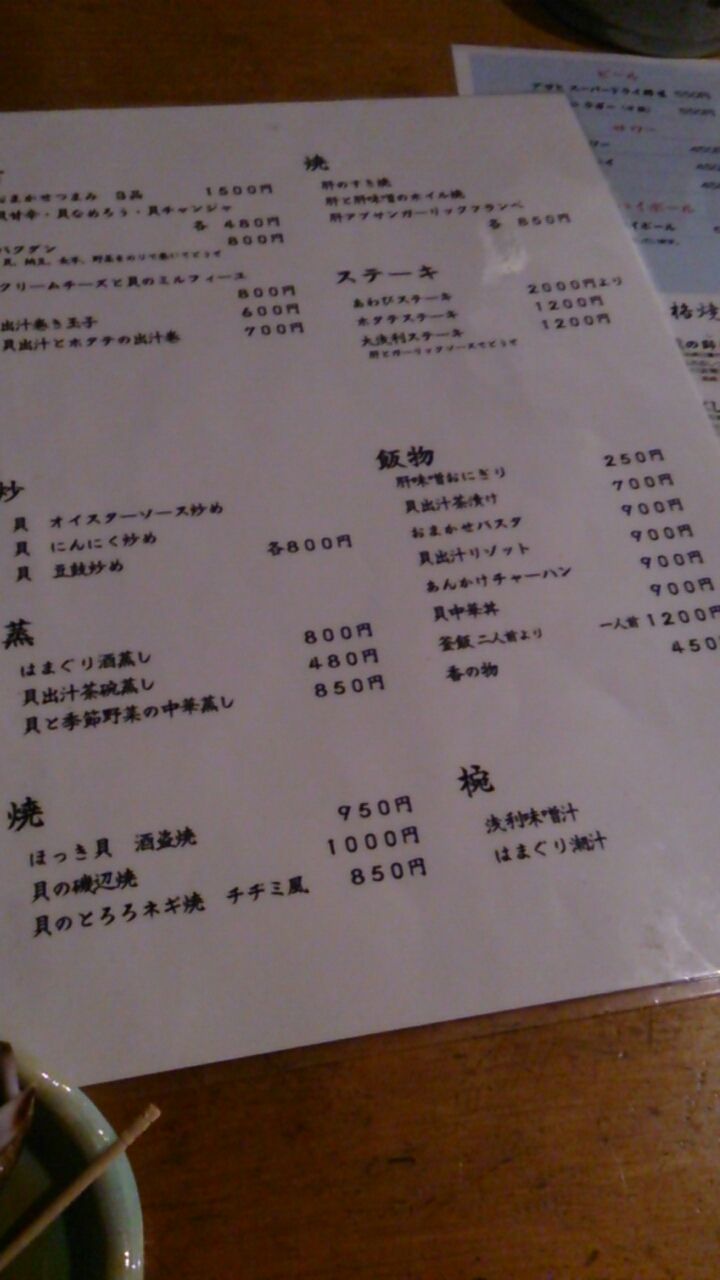 おまかせつまみ 8品 1500円
貝甘辛・貝なめろう・貝チャンジャ
各 480円
バクダン 800円
クリームチーズと貝のミルフィーユ
800円
出汁巻き玉子 600円
貝出汁とホタテの出汁巻 700円
炒
貝 オイスターソース炒め
貝 にんにく炒め
貝 豆鼓炒め
各800円
蒸
はまぐり酒蒸し 800円
貝出汁茶碗蒸し 480円
貝と季節野菜の中華蒸し 850円
焼
ほっき貝 酒盗焼 950円
貝の磯辺焼 1000円
貝のとろろネギ焼 チヂミ風 850円
焼
肝のすき焼
肝と肝味噌のホイル焼
肝アブサンガーリックフランベ
各 850円
ステーキ
あわびステーキ 2000円より
ホタテステーキ 1200円
大浅利ステーキ 1200円
肝とガーリックソースでどうぞ
飯物
肝味噌おにぎり 250円
貝出汁茶漬け 700円
おまかせパスタ 900円
貝出汁リゾット 900円
あんかけチャーハン 900円
貝中華丼 900円
釜飯 二人前より 一人前1200円
香の物 450
椀
浅利味噌汁
はまぐり潮汁
ビール
アサヒ スーパードライ 550円
550円
サワー
450
450
ハイボール